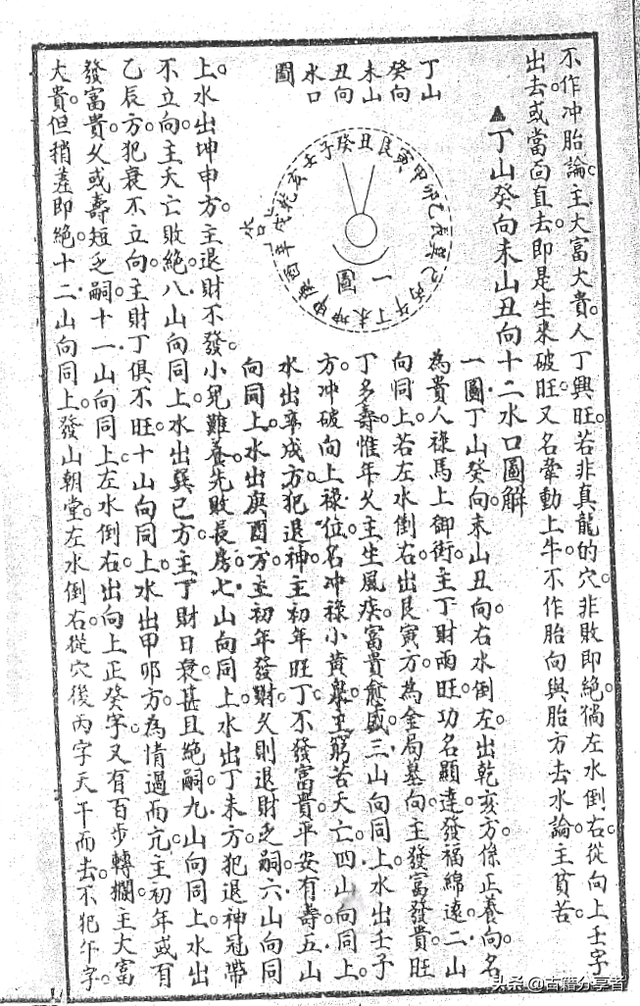 不作冲胎論。主大富大貴。人丁興旺。若非真龍的穴。非敗即絕。倘左水倒右。從向上壬字
出去。或當面直去。即是生來破旺。又名牽動土牛。不作胎向與胎方去水論。主貧苦。
▲丁山癸向未山丑向十二水口圖解
丁山
癸向
未山
丑向
水口
圖
壬子癸丑艮寅甲卯乙辰巽巳丙午丁未坤申庚酉辛戌乾亥
一圖
一圖丁山癸向。未山丑向。右水倒左。出乾亥方。係正養向。名
為貴人祿馬上御街。主丁財兩旺。功名顯達。發福綿遠。二山
向同上。若左水倒右。出艮寅方。為金局墓向。主發富發貴。旺
丁多壽。惟年久主生風疾。富貴愈盛。三山向同上。水出壬子
方。冲破向上祿位。名冲祿小黃泉。主窮苦夭亡。四山向同上。
水出辛戌方。犯退神。主初年旺丁。不發富貴。平安有壽。五山
向同上。水出庚酉方。主初年發財。久則退財乏嗣。六山向同
上。水出坤申方。主退財不發。小兒難養。先敗長房。七山向同上。水出丁未方。犯退神冠帶
不立向。主夭亡敗絕。八山向同上。水出巽巳方。主丁財日衰。甚且絕嗣。九山向同上。水出
乙辰方。犯衰不立向。主財丁俱不旺。十山向同上。水出甲卯方。為情過而亢。主初年或有
發富貴。久或壽短乏嗣。十一山向同上。左水倒右。出向上正癸字。又有百步轉攔。主大富
大貴。但稍差即絕。十二山向同上。發山朝堂。左水倒右。從穴後丙字天干而去。不犯午字。
头条@古籍分享者